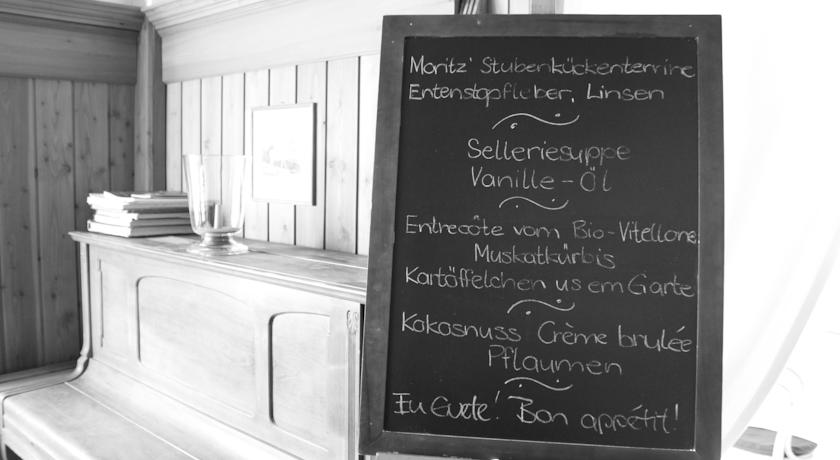 Moritz' Stubenkückenterrine
Entenstopfleber, Linsen
Selleriesuppe
Vanille-Öl
Entrecôte vom Bio-Vitellone
Muskatkürbis
Kartöffelchen us em Garte
Kokosnuss Crème brulée
Pflaumen
En Guete! Bon appétit!